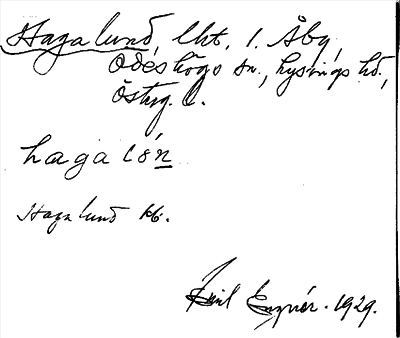 Hagalund, lht. 1. Åby,
Ödeshögs sn., Lysings hd.,
Österg. l.
hagalón
Hagalund kb.
Emil Enqvér. 1929.